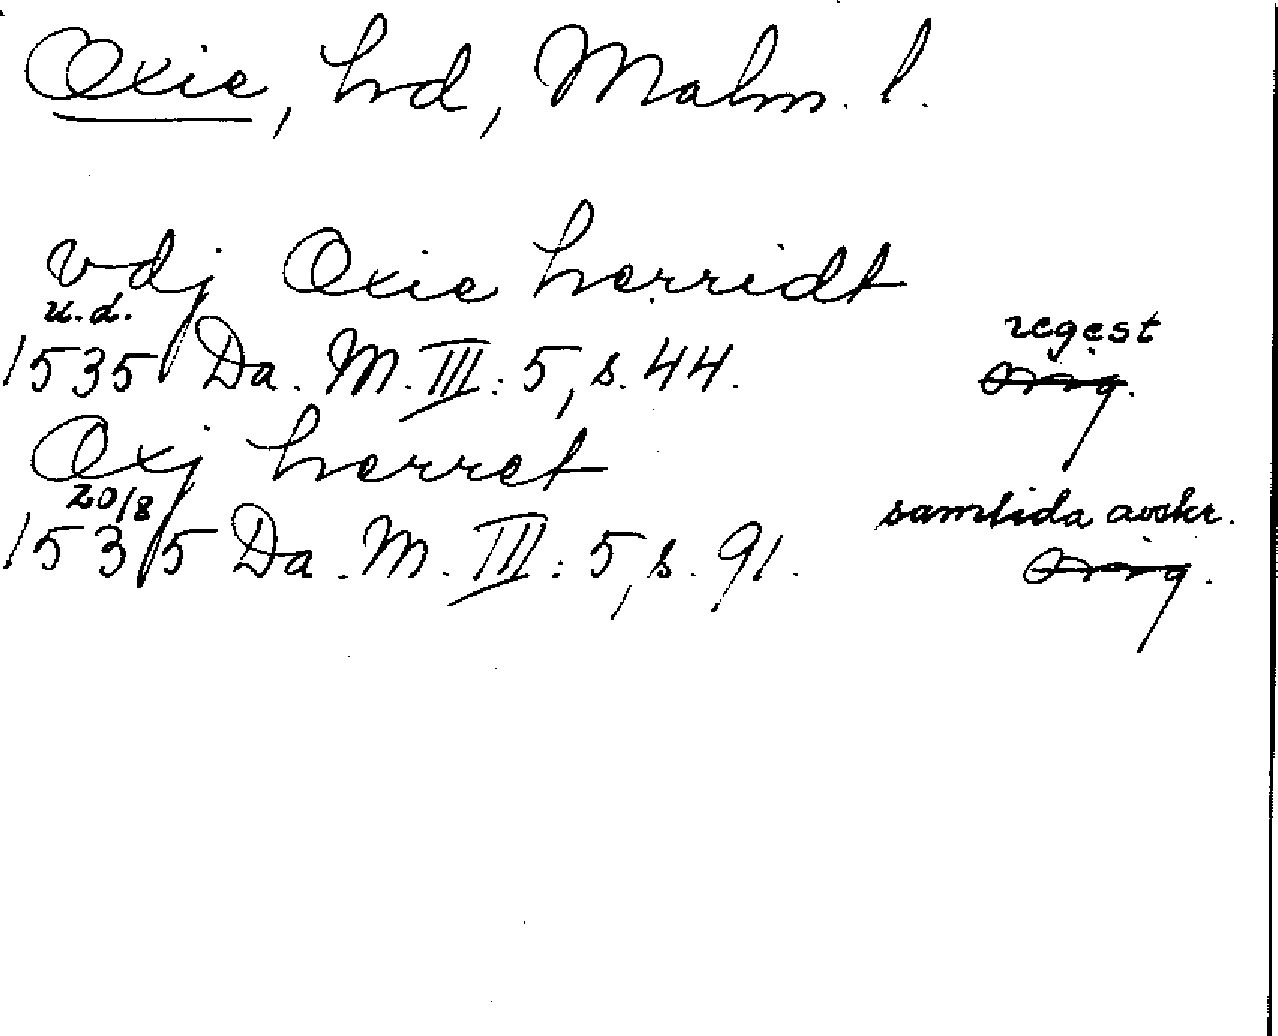 Oxie, hd, Malm. l.
vdj Oxie herridt
u.d. regest
1535 Da. M. III: 5, s. 44. orig.
Oxj herret
20/8 samtida avskr.
1535 Da. M. III: 5, s. 91. orig.